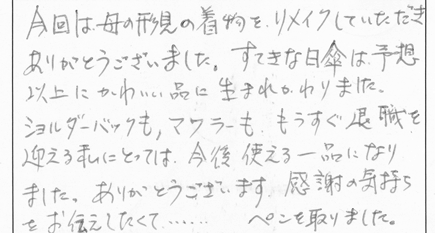 今回は母の形見の着物を、リメイクしていただき
ありがとうございました。すてきな日傘は、予想
以上にかわいい品に生まれかわりました。
ショルダーバックも、マフラーも、もうすぐ退職を
迎える私にとっては、今後使える一品になり
ました。ありがとうございます 感謝の気持ち
をお伝えしたくて…… ペンを取りました。